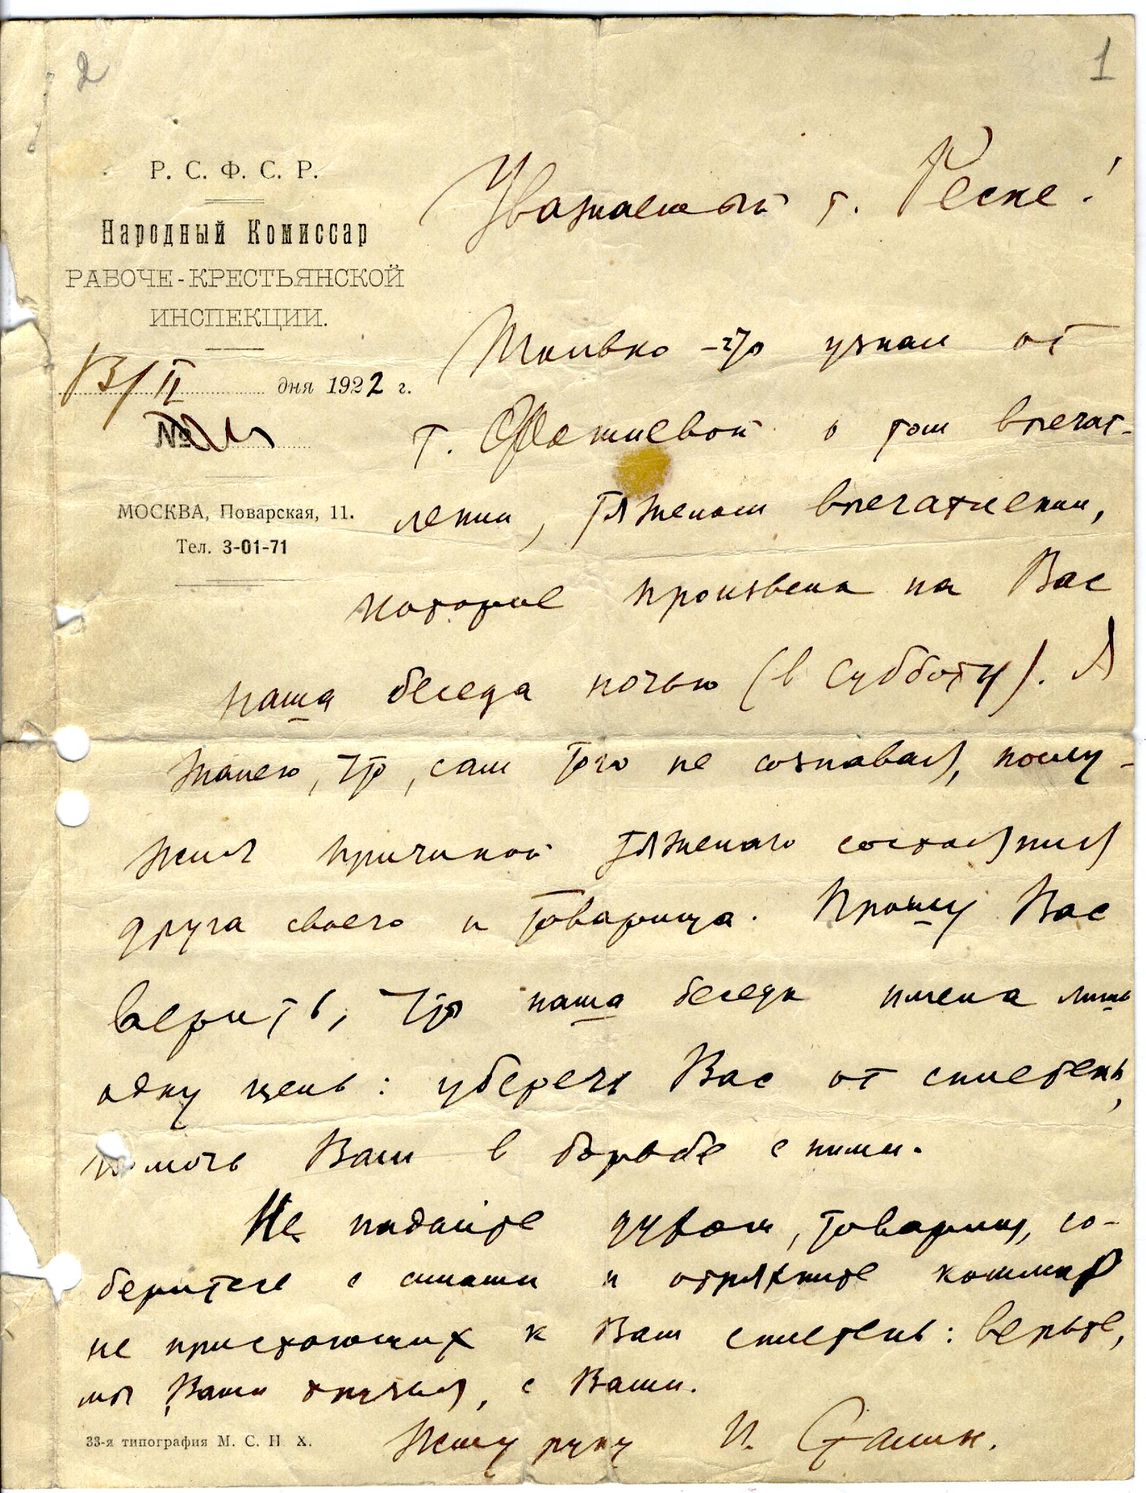 2
1
Р. С. Ф. С. Р.
Народный Комиссар
РАБОЧЕ-КРЕСТЬЯНСКОЙ
ИНСПЕКЦИИ.
13/II дня 1922 г.
№
МОСКВА, Поварская, 11.
Тел. 3-01-71
Уважаемый т. Реске!
Только-что узнал от
т. Фотиевой о том впечат-
лении, тяжелом впечатлении,
которое произвела на Вас
наша беседа ночью (в субботу). Я
жалею, что, сам того не сознавая, послу-
жил причиной тяжелаго состояния
друга своего и товарища. Прошу Вас
верить, что наша беседа имела лишь
одну цель: уберечь Вас от сплетень,
помочь Вам в борьбе с ними.
Не падайте духом, товарищ, со-
беритесь с силами и отряхните кошмар
не пристающих к Вам сплетень: верьте,
мы Ваши друзья, с Вами.
Жму руку И. Сталин.
33-я типография М. С. Н. Х.